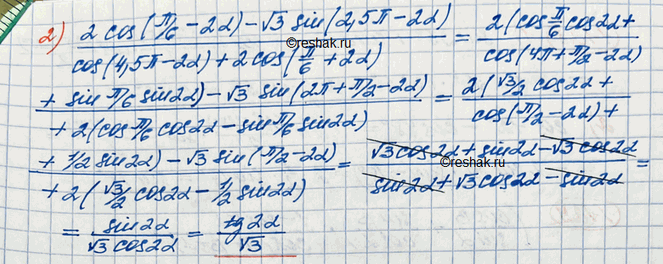 2) (2 cos(π/6 - 2α) - √3 sin(2,5π - 2α)) / (cos(4,5π - 2α) + 2 cos(π/6 + 2α)) = (2(cos π/6 cos2α +) / (cos(4π + π/2 - 2α)
reshak.ru
(+ sin π/6 sin2α) - √3 sin(2π + π/2 - 2α)) / (+ 2(cos π/6 cos2α - sin π/6 sin2α)) = (2(√3/2 cos2α +) / (cos(π/2 - 2α) +)
(+ 1/2 sin2α) - √3 sin(π/2 - 2α)) / (+ 2(√3/2 cos2α - 1/2 sin2α)) = (√3 cos2α + sin2α - √3 cos2α) / (sin2α + √3 cos2α - sin2α) =
reshak.ru
= sin2α / (√3 cos2α) = tg2α / √3